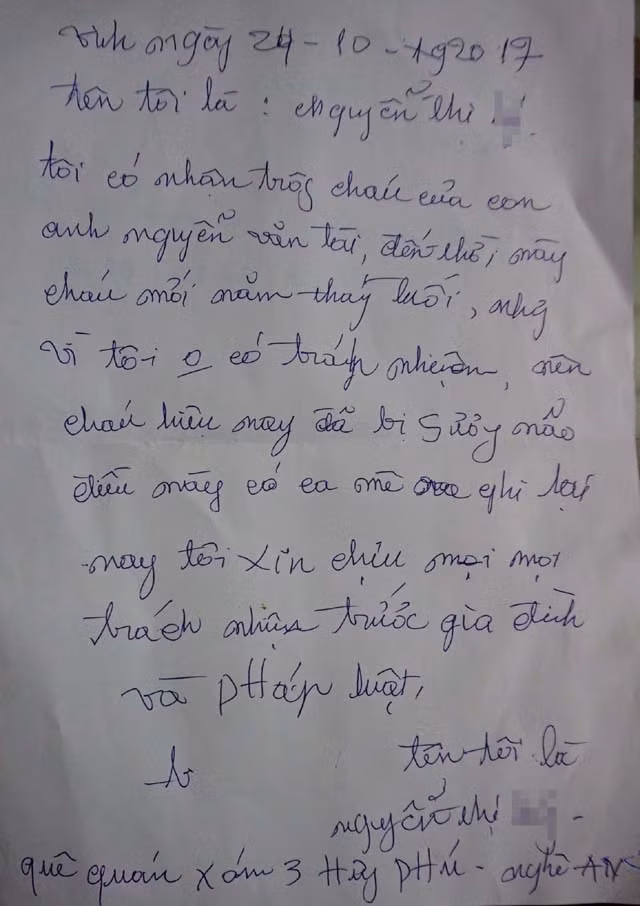 Vinh ngày 24-10-1920 17
tên tôi là : Nguyễn thị
tôi có nhận trông cháu của con
anh nguyễn văn tài, đến thời này
cháu mới năm tháy tuổi, nhg
vì tôi o có trách nhiệm, nên
cháu hiện nay đã bị sưng não
điều này có ca mê ra ghi lại
nay tôi xin chịu mọi mọi
trách nhiệm trước gia đình
và pHáp luật,
tên tôi là
nguyễn thị
quê quán xóm 3 - nghê AN